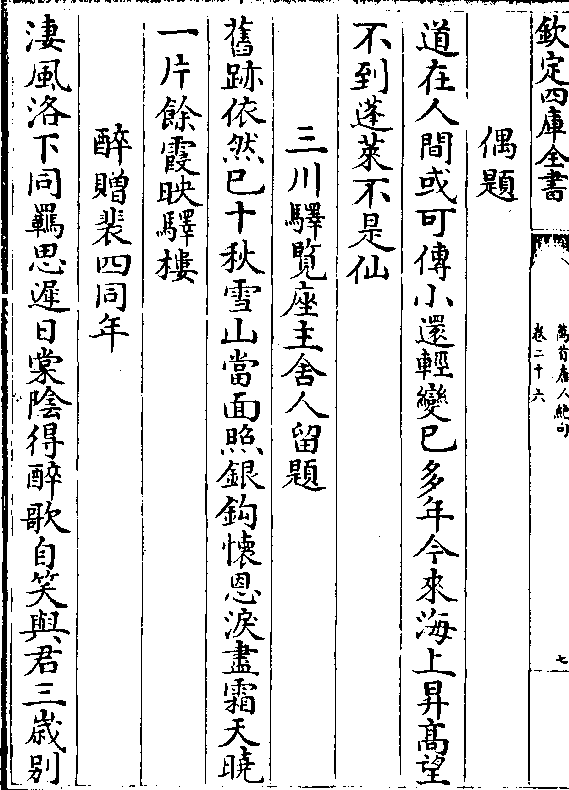 欽定四庫全書
萬首唐人絶句
卷二十六
七
偶題
道在人間或可傳小還輕變已多年今來海上昇髙望
不到蓬萊不是仙
三川驛覽座主舍人留題
舊跡依然已十秋雪山當面照銀鈎懐恩淚盡霜天曉
一片餘霞映驛樓
醉贈裴四同年
淒風洛下同羈思遲日棠陰得醉歌自笑與君三歳别